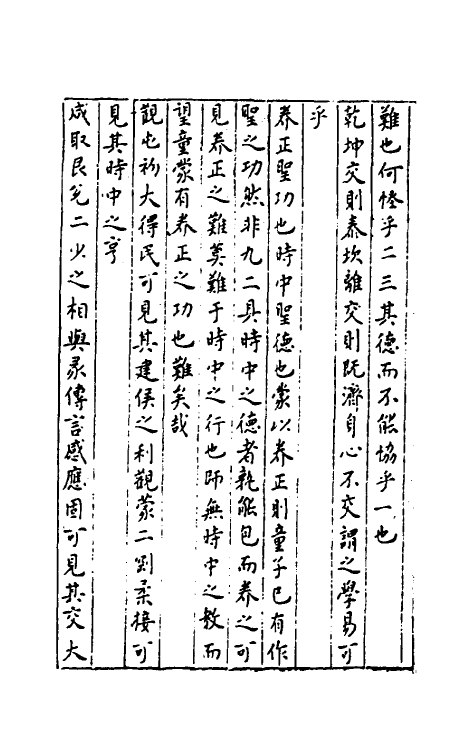 難也何怪乎二三其德而不能協乎一也
乾坤交則泰坎離交則既濟自心不交謂之學易可
乎
养正聖功也時中聖德也蒙以养正則童子已有作
聖之功然非九二具時中之德者孰能包而养之可
見养正之難莫難于時中之行也師無時中之教而
望童蒙有养正之功也難矣哉
觀屯初大得民可見其建侯之利觀蒙二剛柔接可
見其時中之亨
咸取艮兌二少之相與彖傳言感應固可見其交大